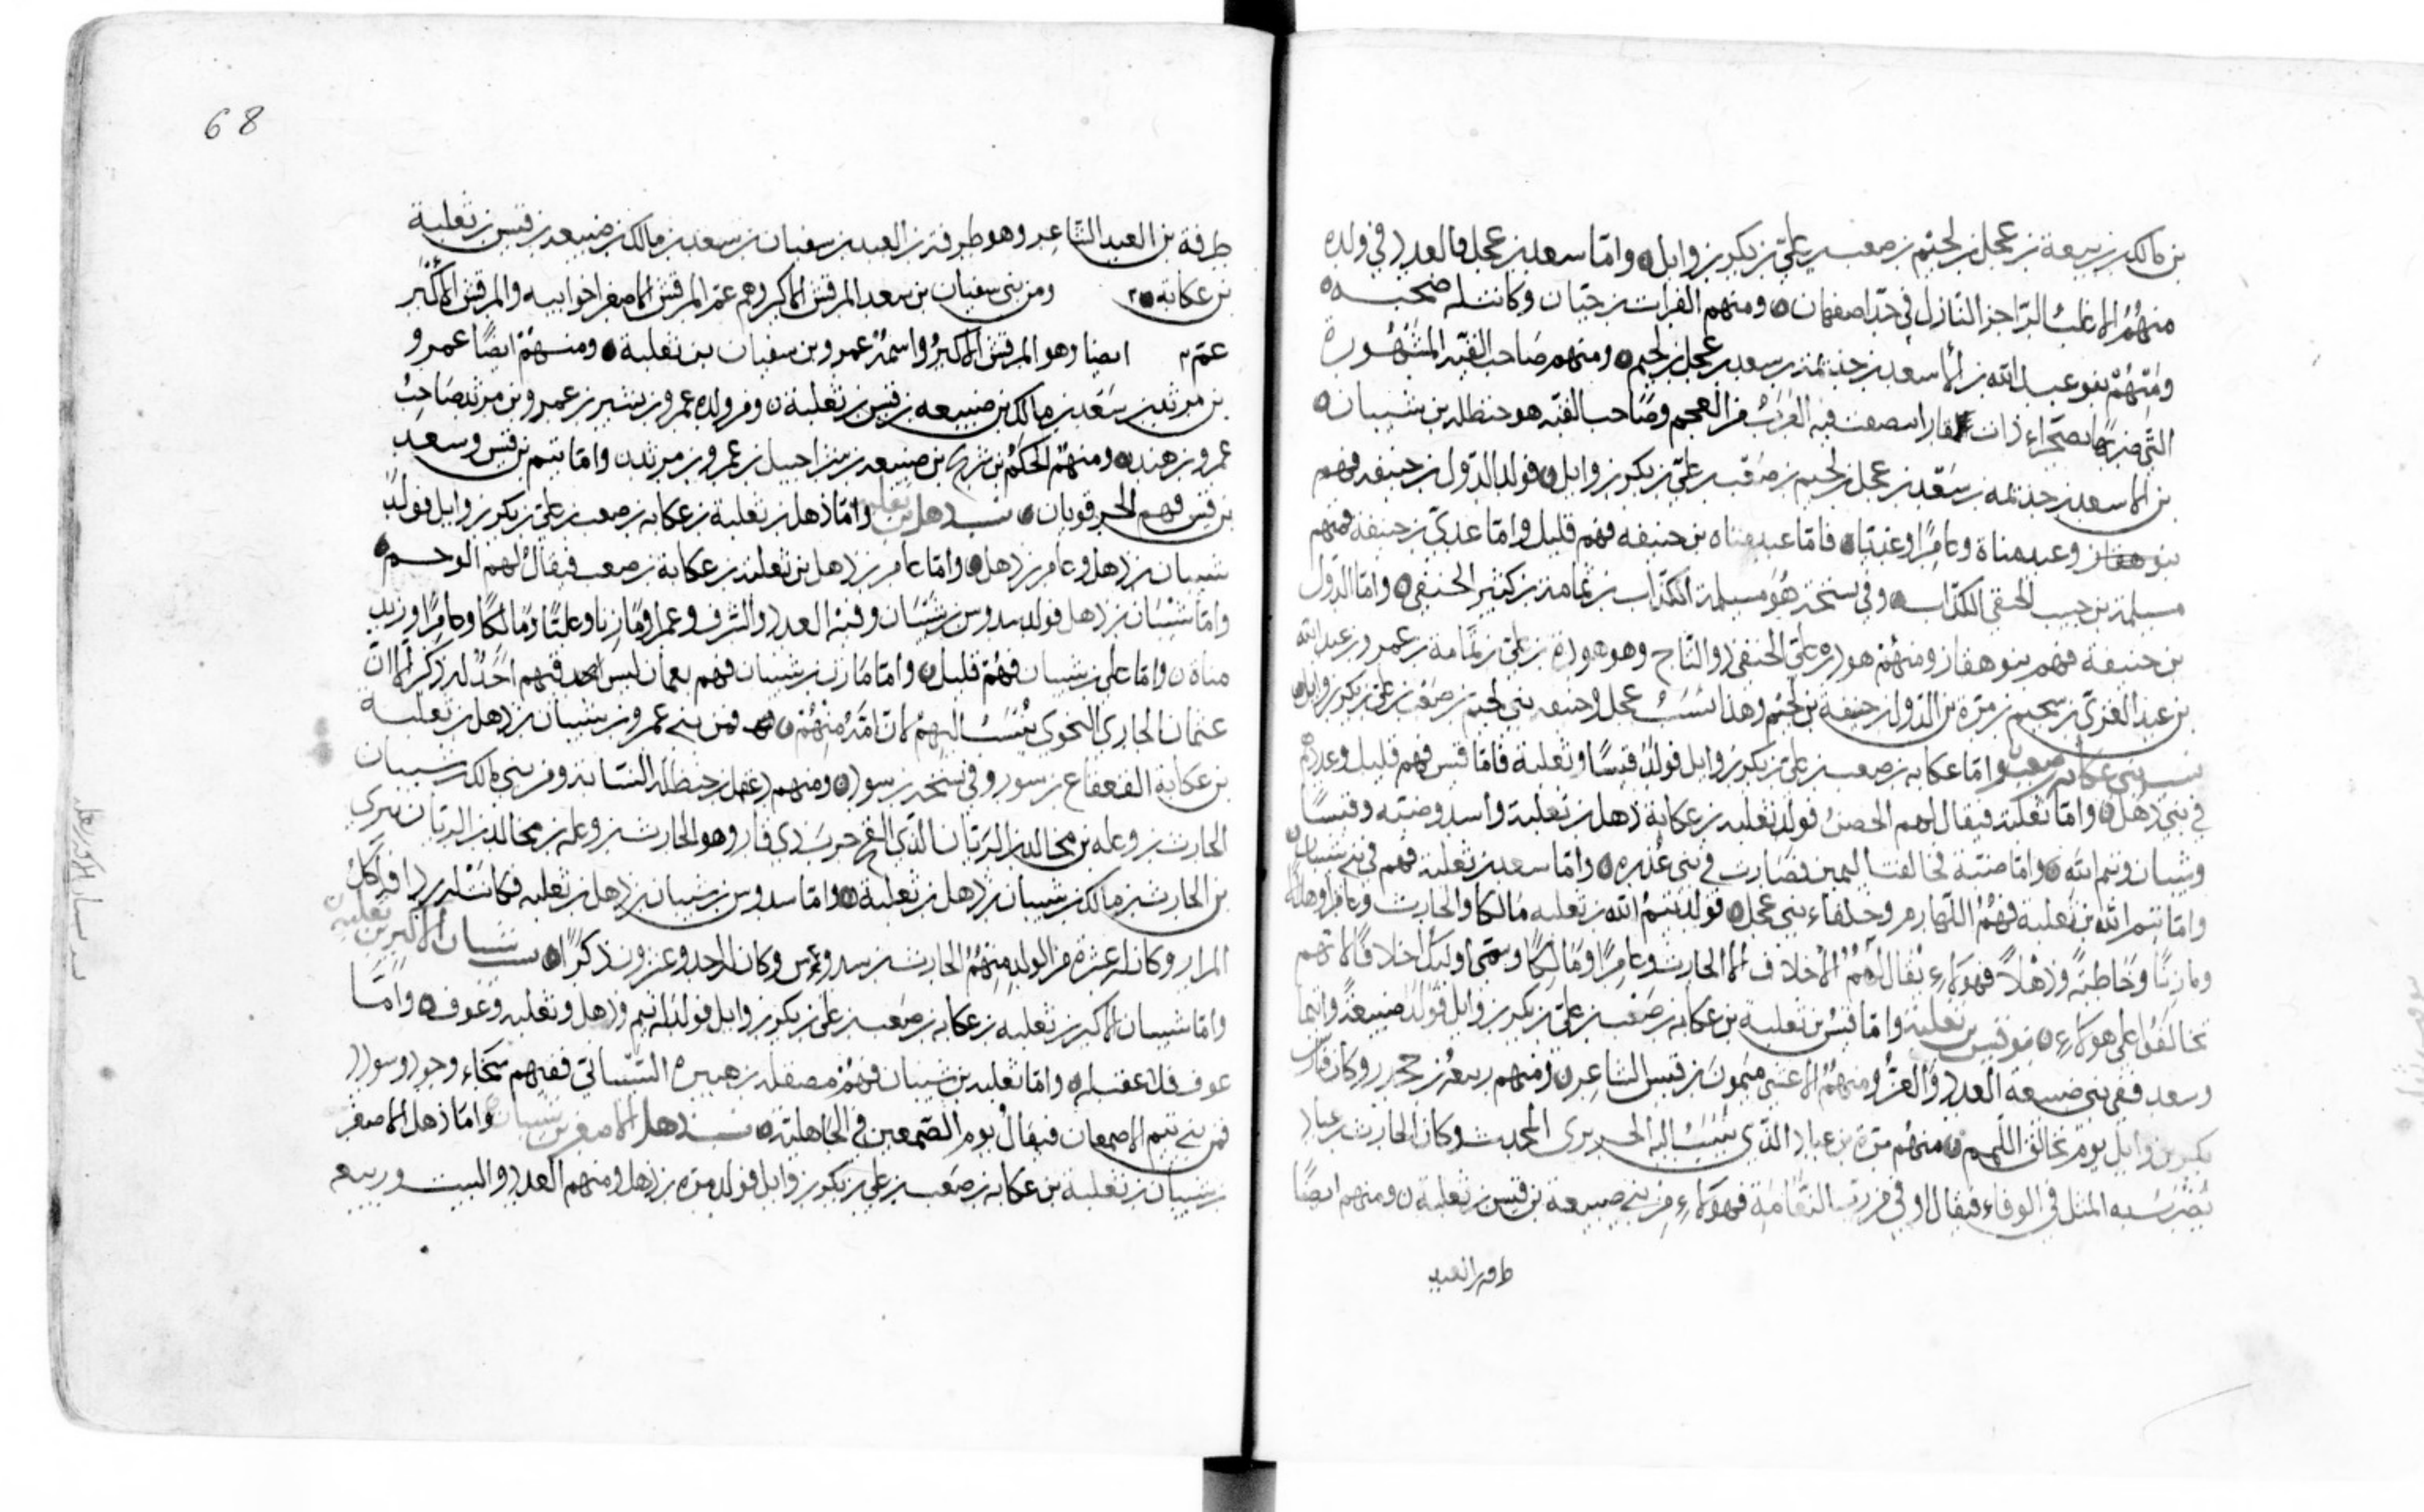 بن مالك بن ربيعة بن عجل بن لجيم بن صعب بن علي بن بكر بن وايل ٥ واما سعد بن عجل فالعدد في ولده
منهم الاغلب الراجز النازل في حد اصفهان ٥ ومنهم الفرات بن حيان وكانت له صحبه ٥
ومنهم بنو عبد الله بن الاسعد بن جذيمة بن سعد بن عجل بن لجيم ٥ ومنهم صاحب القبة المشهورة
التي ضربها بصحراء ذات قار انتصفت فيه العرب من العجم وصاحب القبه هو حنظله بن شيبان ٥
بن الاسعد بن جذيمه بن سعد بن عجل بن لجيم بن صعب بن علي بن بكر بن وايل ٥ فولد الدول بن حنيفه فهم
بنو هفان وعبد مناة وعامرا وعديا ٥ فاما عبد مناه بن حنيفه فهم قليل واما عدي بن حنيفة فمنهم
مسيلمة بن حبيب الحنفي الكذاب ٥ وفي نسخة هو مسيلمة الكذاب بن ثمامة بن كثير الحنفي ٥ واما الدول
بن حنيفة فهم بنو هفان ومنهم هوذة بن علي الحنفي ذو التاج وهو هوذة بن علي بن ثمامة بن عمرو بن عبد الله
بن عبد العزى بن سحيم بن مرة بن الدول بن حنيفة بن لجيم وهذا نسب عجل وحنيفه بني لجيم بن صعب بن علي بن بكر بن وايل ٥
نسب بني عكابه بن صعب واما عكابه بن صعب بن علي بن بكر بن وايل فولد قيسا وثعلبة فاما قيس فهم قليل وعددهم
في بني ذهل ٥ واما ثعلبة فيقال لهم الحصن فولد ثعلبه بن عكابة ذهل بن ثعلبة واسد وضبته وقيسا
وشيبان وتيم الله ٥ واما ضبة فحالفت اليمن فصارت في بني عذره ٥ واما سعد بن ثعلبة فهم في بني شيبان
واما تيم الله بن ثعلبة فهم اللهازم وحلفاء بني عجل ٥ فولد تيم الله بن ثعلبه مالكا والحارث وعامرا وهلالا
ومازنا وحاطبة وذهلا فهولاء يقال لهم الاحلاف الا الحارث وعامرا ومالكا وسمي اوليك احلافا لانهم
تحالفوا على هولاء ٥ بنو قيس بن ثعلبة واما قيس بن ثعلبة بن عكابه بن صعب بن علي بن بكر بن وايل فولد ضبيعة وتيما
وسعد ففي بني ضبيعة العدد والعز ومنهم الاعشى ميمون بن قيس الشاعر ٥ ومنهم ربيعة بن حجدر وكان فارس
بكر بن وايل يوم تحالق اللمم ٥ ومنهم مرة بن عباد الذي ينسب اليه الحريري المحدث وكان الحارث بن عباد
يضرب به المثل في الوفاء فيقال اوفى من رب النعامة فهولاء من بني ضبيعة بن قيس بن ثعلبة ٥ ومنهم ايضا
طرفه بن العبد
68
طرفة بن العبد الشاعر وهو طرفة بن العبد بن سفيان بن سعد بن مالك بن ضبيعه بن قيس بن ثعلبة
بن عكابه ٥ ومن بني سفيان بن سعد المرقش الاكبر وهم عم المرقش الاصغر اخو ابيه والمرقش الاكبر
عم ايضا وهو المرقش الاكبر واسمه عمرو بن سفيان بن ثعلبة ٥ ومنهم ايضا عمرو
بن مرثد بن سعد بن مالك بن ضبيعه بن قيس بن ثعلبة ٥ ومن ولده عمرو بن بشير بن عمرو بن مرثد صاحب
عمرو بن هند ٥ ومنهم الحكم بن شريح بن ضبيعه بن شراحيل بن عمرو بن مرثد ٥ واما تيم بن قيس وسعد
بن قيس فهم الحرقوبان ٥ نسب ذهل بن ثعلبة واما ذهل بن ثعلبة بن عكابه بن صعب بن علي بن بكر بن وايل فولد
شيبان بن ذهل وعامر بن ذهل ٥ واما عامر بن ذهل بن ثعلبة بن عكابة بن صعب فيقال لهم الوخم ٥
واما شيبان بن ذهل فولد سدوس بن شيبان وفيه العدد والشرف وعمرا ومازنا وعليا ومالكا وعامرا وزيد
مناة ٥ واما علي بن شيبان فهم قليل ٥ واما مازن بن شيبان فهم بعمان ليس فيهم احد له ذكر الا ان
عثمان المازني النحوي ينسب اليهم لان امه منهم ٥ فمن بني عمرو بن شيبان بن ذهل بن ثعلبة
بن عكابة القعقاع بن سور وفي نسخة بن سود ٥ ومنهم دغفل بن حنظله النسابة ومن بني مالك بن شيبان
الحارث بن وعله بن مجالد بن الريان الذي الحرب ذي قار وهو الحارث بن وعله بن مجالد بن الريان بن يثربي
بن الحارث بن مالك بن شيبان بن ذهل بن ثعلبة ٥ واما سدوس بن شيبان بن ذهل بن ثعلبه فكانت له ردافة آكل
المرار وكان له عشرة من الولد منهم الحارث بن سدوس وكان له احد وعشرون ذكرا ٥ نسب شيبان الاكبر بن ثعلبة
واما شيبان الاكبر بن ثعلبه بن عكابه بن صعب بن علي بن بكر بن وايل فولد له تيم وذهل وثعلبه وعوف ٥ واما
عوف فلا عقب له ٥ واما ثعلبه بن شيبان فمنهم مصقله بن هبيرة الشيباني ففيهم سخاء وجود وسودد
فمن بني تيم الاصمعان فيقال يوم الصمعين في الجاهلية ٥ نسب ذهل الاصغر بن شيبان واما ذهل الاصغر
بن شيبان بن ثعلبة بن عكابه بن صعب بن علي بن بكر بن وايل فولد مره بن ذهل ومنهم العدد والبيت وربيعه